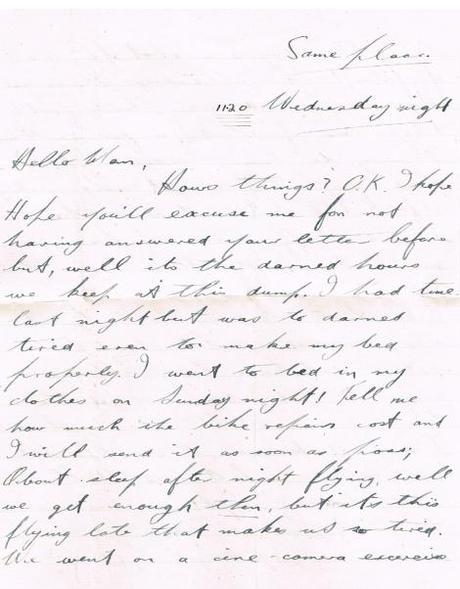 Same place.
11.20 Wednesday night
Hello Mam,
Hows things? O.K. I hope
Hope you'll excuse me for not
having answered your letter before
but, well its the darned hours
we keep at this dump. I had time
last night but was to darned
tired even to make my bed
properly. I went to bed in my
clothes on Sunday night! Tell me
how much the bike repairs cost and
I will send it as soon as poss;
About sleep after night flying, well
we get enough then, but its this
flying late that makes us so tired.
We went on a cine-camera exercise